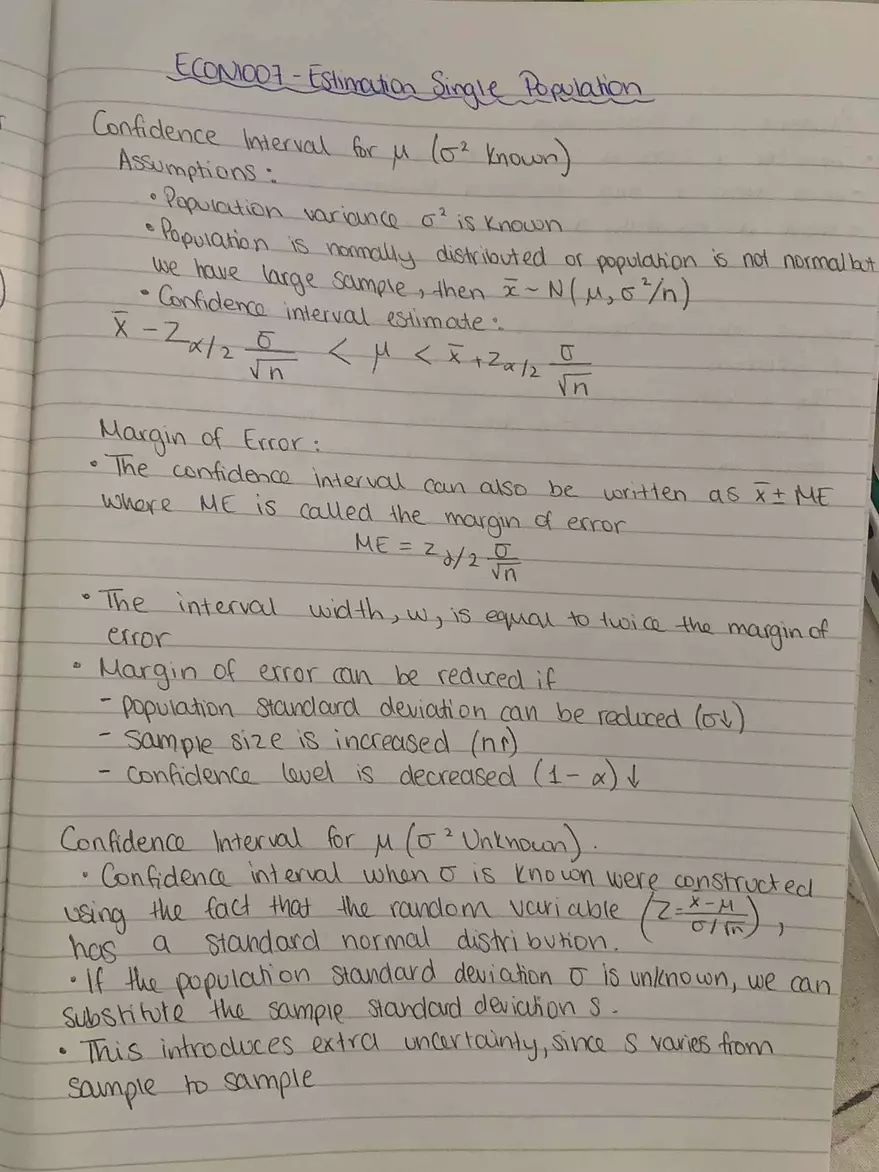 ECON1007 - Estimation Single Population
Confidence Interval for μ (σ² known)
Assumptions:
• Population variance σ² is known
• Population is normally distributed or population is not normal but
we have large sample, then x̄ ~ N(μ, σ²/n)
• Confidence interval estimate:
x̄ - Zα/2 σ/√n < μ < x̄ + Zα/2 σ/√n
Margin of Error:
• The confidence interval can also be written as x̄ ± ME
where ME is called the margin of error
ME = zα/2 σ/√n
• The interval width, w, is equal to twice the margin of
error
• Margin of error can be reduced if
- population standard deviation can be reduced (σ↓)
- sample size is increased (n↑)
- confidence level is decreased (1-α)↓
Confidence Interval for μ (σ² Unknown).
• Confidence interval when σ is known were constructed
using the fact that the random variable (Z = x-μ / σ/√n),
has a standard normal distribution.
• If the population standard deviation σ is unknown, we can
substitute the sample standard deviation s.
• This introduces extra uncertainty, since s varies from
sample to sample